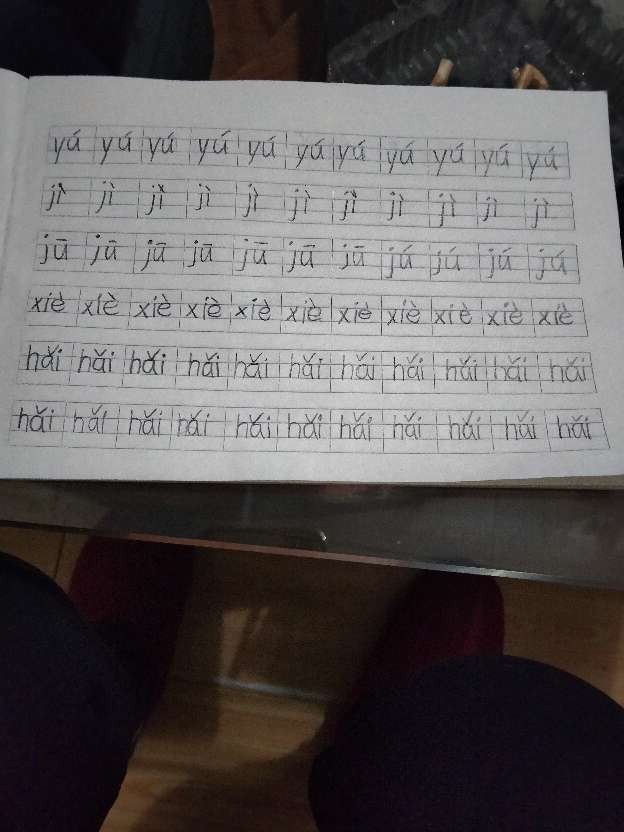 yú yú yú yú yú yú yú yú yú yú yú
jì jì jì jì jì jì jì jì jì jì jì
jū jū jū jū jū jū jū jú jú jú jú
xiè xiè xiè xiè xiè xiè xiè xiè xiè xiè xiè
hǎi hǎi hǎi hǎi hǎi hǎi hǎi hǎi hǎi hǎi hǎi
hǎi hǎi hǎi hǎi hǎi hǎi hǎi hǎi hǎi hǎi hǎi